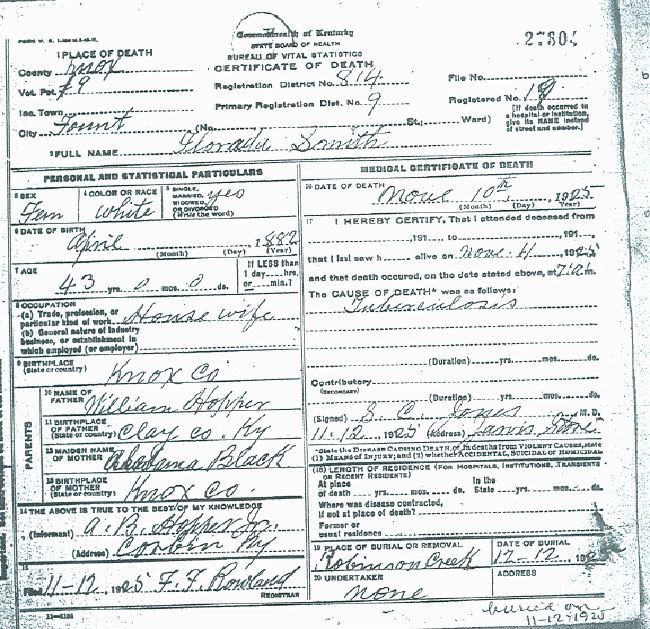 Commonwealth of Kentucky
STATE BOARD OF HEALTH
BUREAU OF VITAL STATISTICS
CERTIFICATE OF DEATH
27304
1 PLACE OF DEATH
County Knox
Vot. Pct. #9
Inc. Town
City Fount (No. St.; Ward)
Registration District No. 814
Primary Registration Dist. No. 9
File No.
Registered No. 19
[If death occurred in
a hospital or institution,
give its NAME instead
of street and number.]
2 FULL NAME Smith
PERSONAL AND STATISTICAL PARTICULARS
3 SEX
Fem
4 COLOR OR RACE
White
5 SINGLE,
MARRIED,
WIDOWED,
OR DIVORCED
(Write the word)
yes
6 DATE OF BIRTH
Aprile 1882
(Month) (Day) (Year)
7 AGE
43 yrs. 0 mos. 0 ds.
If LESS than
1 day....hrs.
or....min.?
8 OCCUPATION
(a) Trade, profession, or
particular kind of work House wife
(b) General nature of industry
business, or establishment in
which employed (or employer)
9 BIRTHPLACE
(State or country) Knox Co
PARENTS
10 NAME OF
FATHER William Hopper
11 BIRTHPLACE
OF FATHER
(State or country) Clay co. Ky
12 MAIDEN NAME
OF MOTHER Black
13 BIRTHPLACE
OF MOTHER
(State or country) Knox Co
14 THE ABOVE IS TRUE TO THE BEST OF MY KNOWLEDGE
(Informant) A. B. Hopper Jr.
(Address) Corbin Ky
15
Filed 11-12, 1925 F. F. Rowland
REGISTRAR
MEDICAL CERTIFICATE OF DEATH
16 DATE OF DEATH
Nove 10th, 1925
(Month) (Day) (Year)
17 I HEREBY CERTIFY, That I attended deceased from
, 191 to , 191
that I last saw h alive on Nove. 4, 1925
and that death occured, on the date stated above, at 7 a.m.
The CAUSE OF DEATH* was as follows:
Tuberculosis
(Duration) yrs. mos. ds.
Contributory
(SECONDARY)
(Duration) yrs. mos. ds.
(Signed) S. C. Jones M.D.
11-12, 1925 (Address) Jarvis Store
*State the DISEASE CAUSING DEATH, or, in deaths from VIOLENT CAUSES, state
(1) MEANS OF INJURY; and (2) whether ACCIDENTAL, SUICIDAL OR HOMICIDAL
(18) LENGTH OF RESIDENCE (FOR HOSPITALS, INSTITUTIONS, TRANSIENTS
OR RECENT RESIDENTS)
At place
of death yrs. mos. ds.
In the
State yrs. mos. ds.
Where was disease contracted,
if not at place of death?
Former or
usual residence
19 PLACE OF BURIAL OR REMOVAL
Robinson Creek
DATE OF BURIAL
12-12, 192
20 UNDERTAKER
none
ADDRESS
buried on
11-12-1925